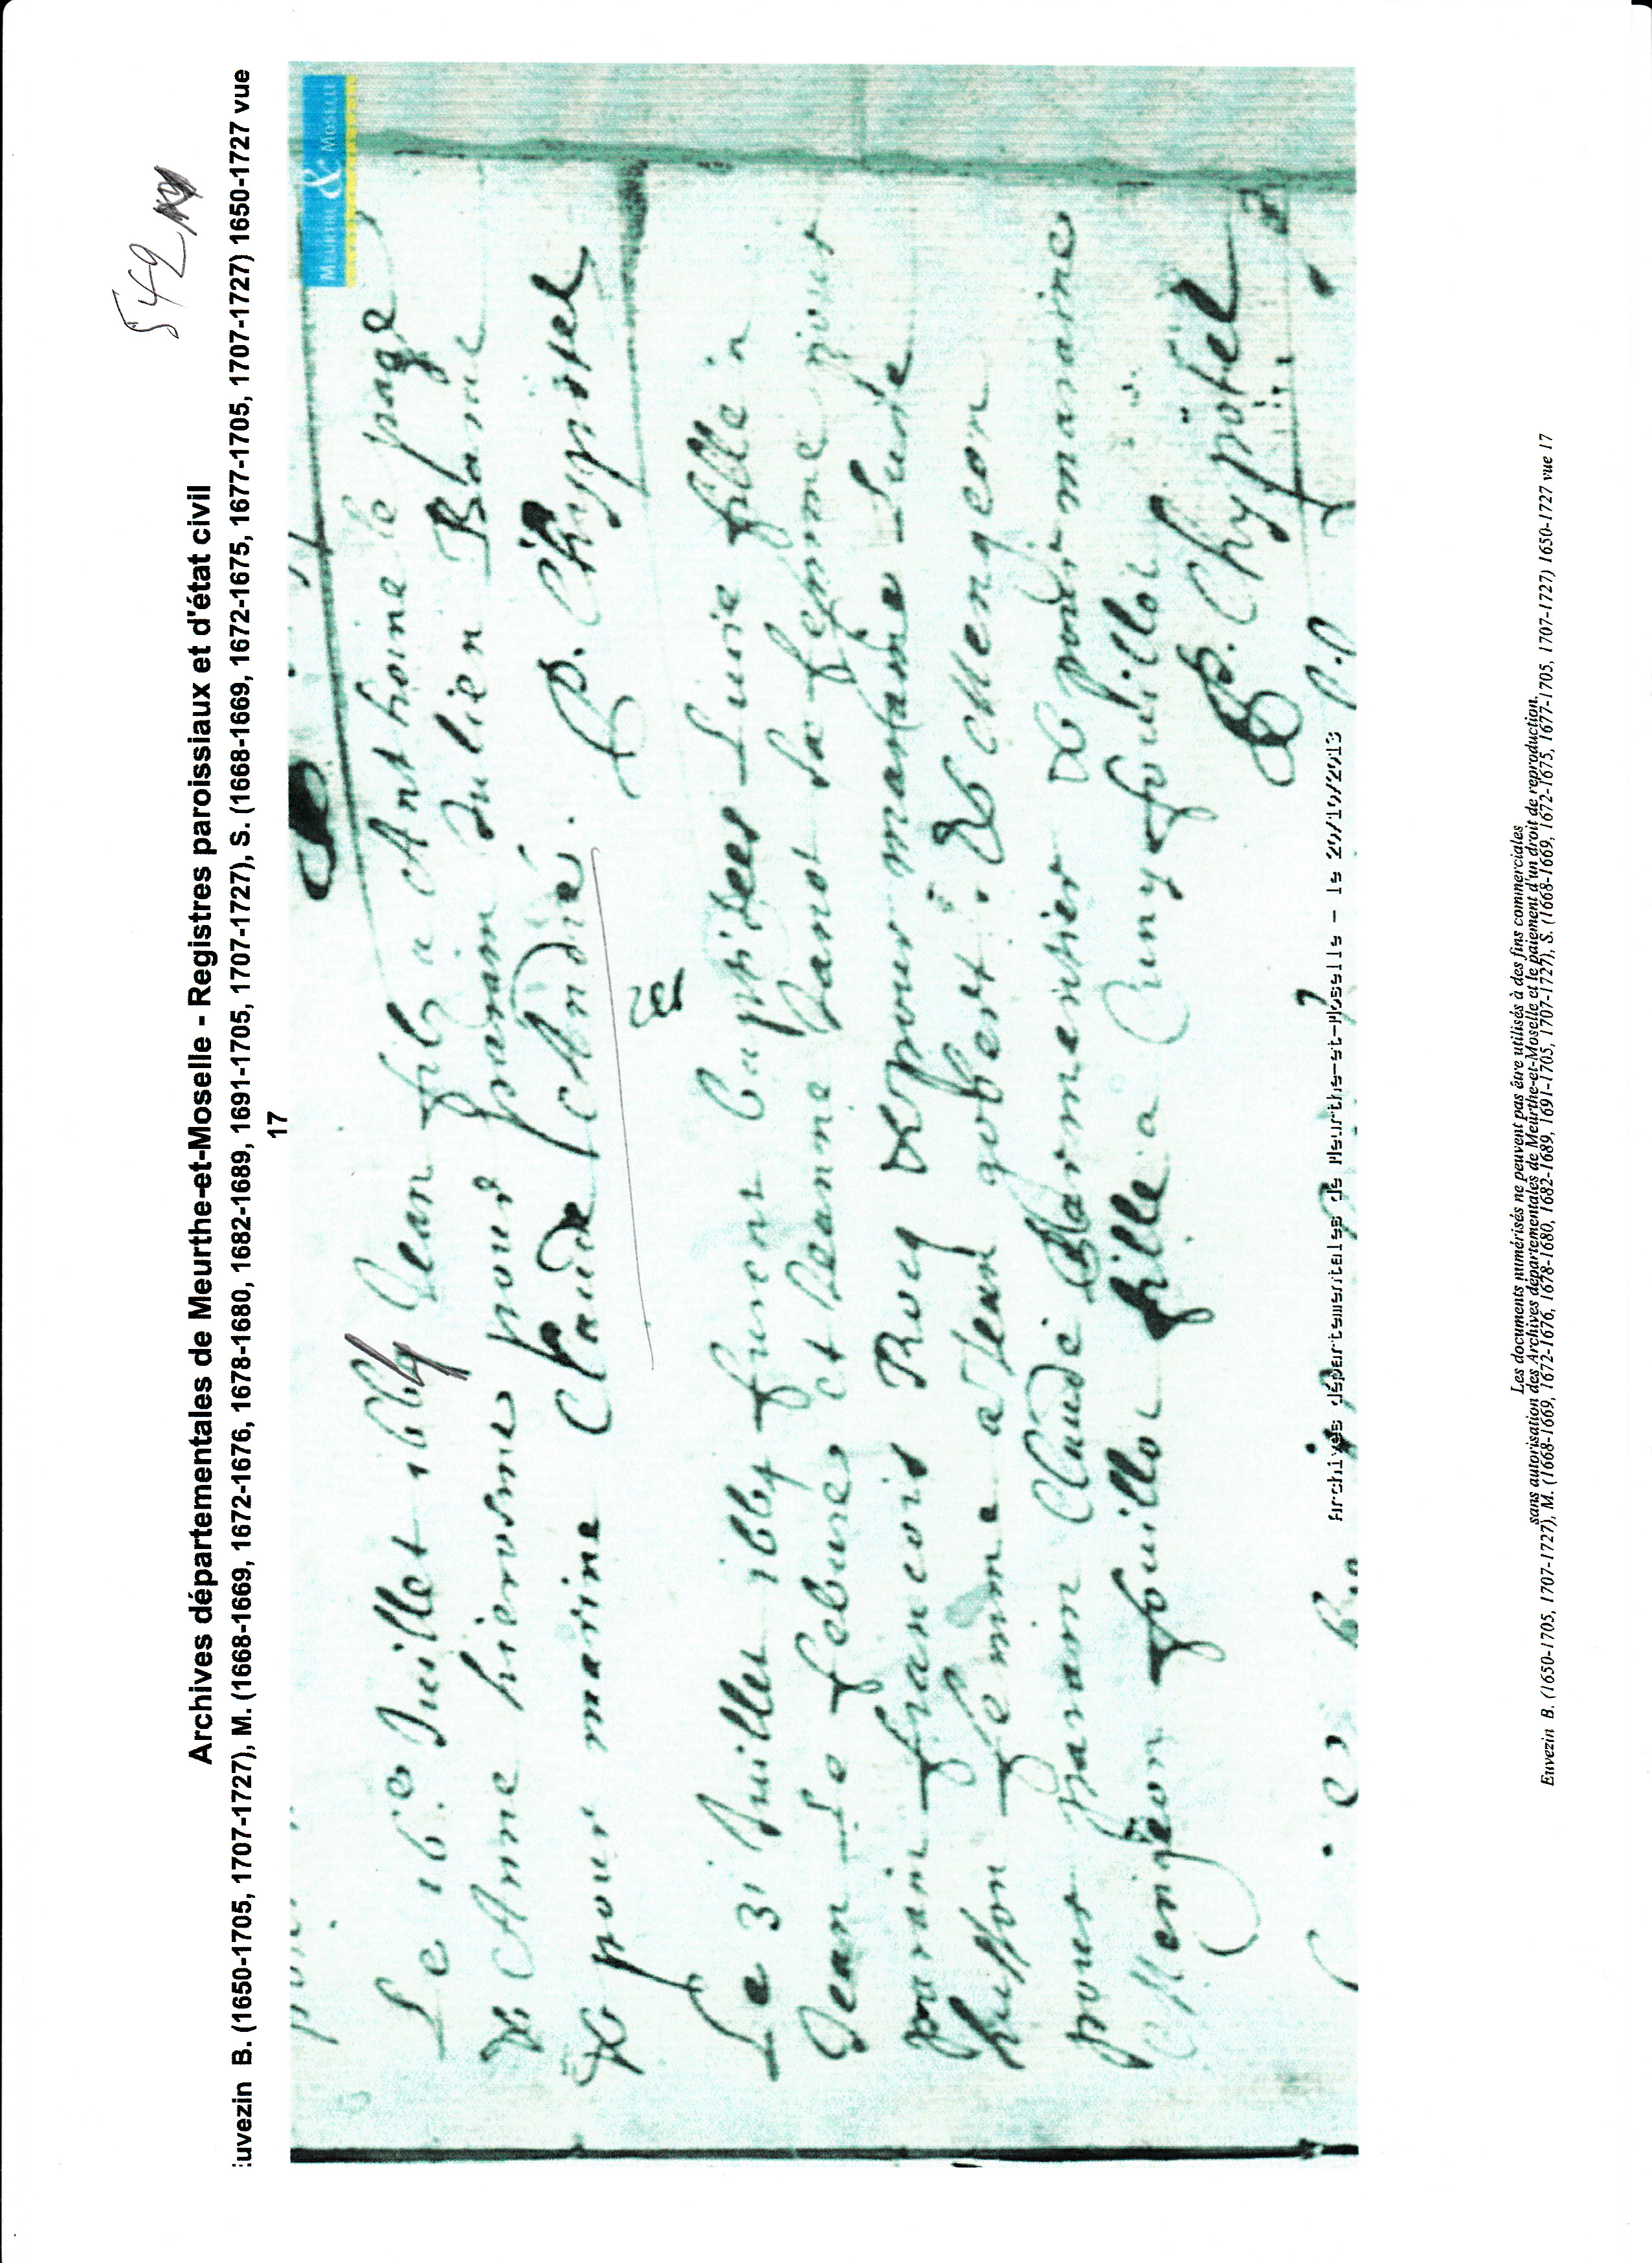 542
Archives départementales de Meurthe-et-Moselle - Registres paroissiaux et d'état civil
uvezin B. (1650-1705, 1707-1727), M. (1668-1669, 1672-1676, 1678-1680, 1682-1689, 1691-1705, 1707-1727), S. (1668-1669, 1672-1675, 1677-1705, 1707-1727) 1650-1727 vue
17
MEURTHE & MOSELLE
Le 16e Juillet 1664 Jean fils a Anthoine le page
et Anne hierosme pour parain Julien Blaise
et pour marine Claude André.
D. Chyppitel
Le 31 Juillet 1664 furent baptisees Lucie fille a
Jean Le febure et Jeanne sa femme pour
parain francois Rouy et pour maraine Lucie
husson femme a Jean gobert. Et Mengeon
pour parain Claude Parmentier et pour maraine
Mengeon fouillot fille a Cuny fouillot
D. Chypotel
Archives départementales de Meurthe-et-Moselle - le 20/10/2013
Les documents numérisés ne peuvent pas être utilisés à des fins commerciales
sans autorisation des Archives départementales de Meurthe-et-Moselle et le paiement d'un droit de reproduction.
Euvezin B. (1650-1705, 1707-1727), M. (1668-1669, 1672-1676, 1678-1680, 1682-1689, 1691-1705, 1707-1727), S. (1668-1669, 1672-1675, 1677-1705, 1707-1727) 1650-1727 vue 17